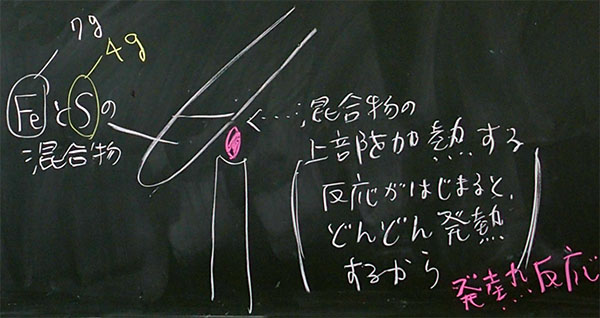 7g
4g
FeとSの
混合物
混合物の
上部を加熱する
反応がはじまると、
どんどん発熱
するから
発熱反応